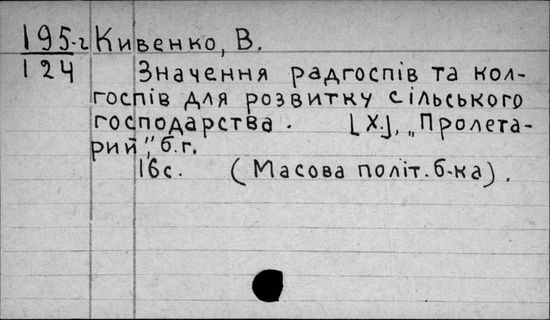 195-г Кивенко, В.
124 Значення радгоспів та кол-
госпів для розвитку сільського
господарства. [Х.], „Пролета-
рий", б.г.
16с. (Масова політ. б-ка).